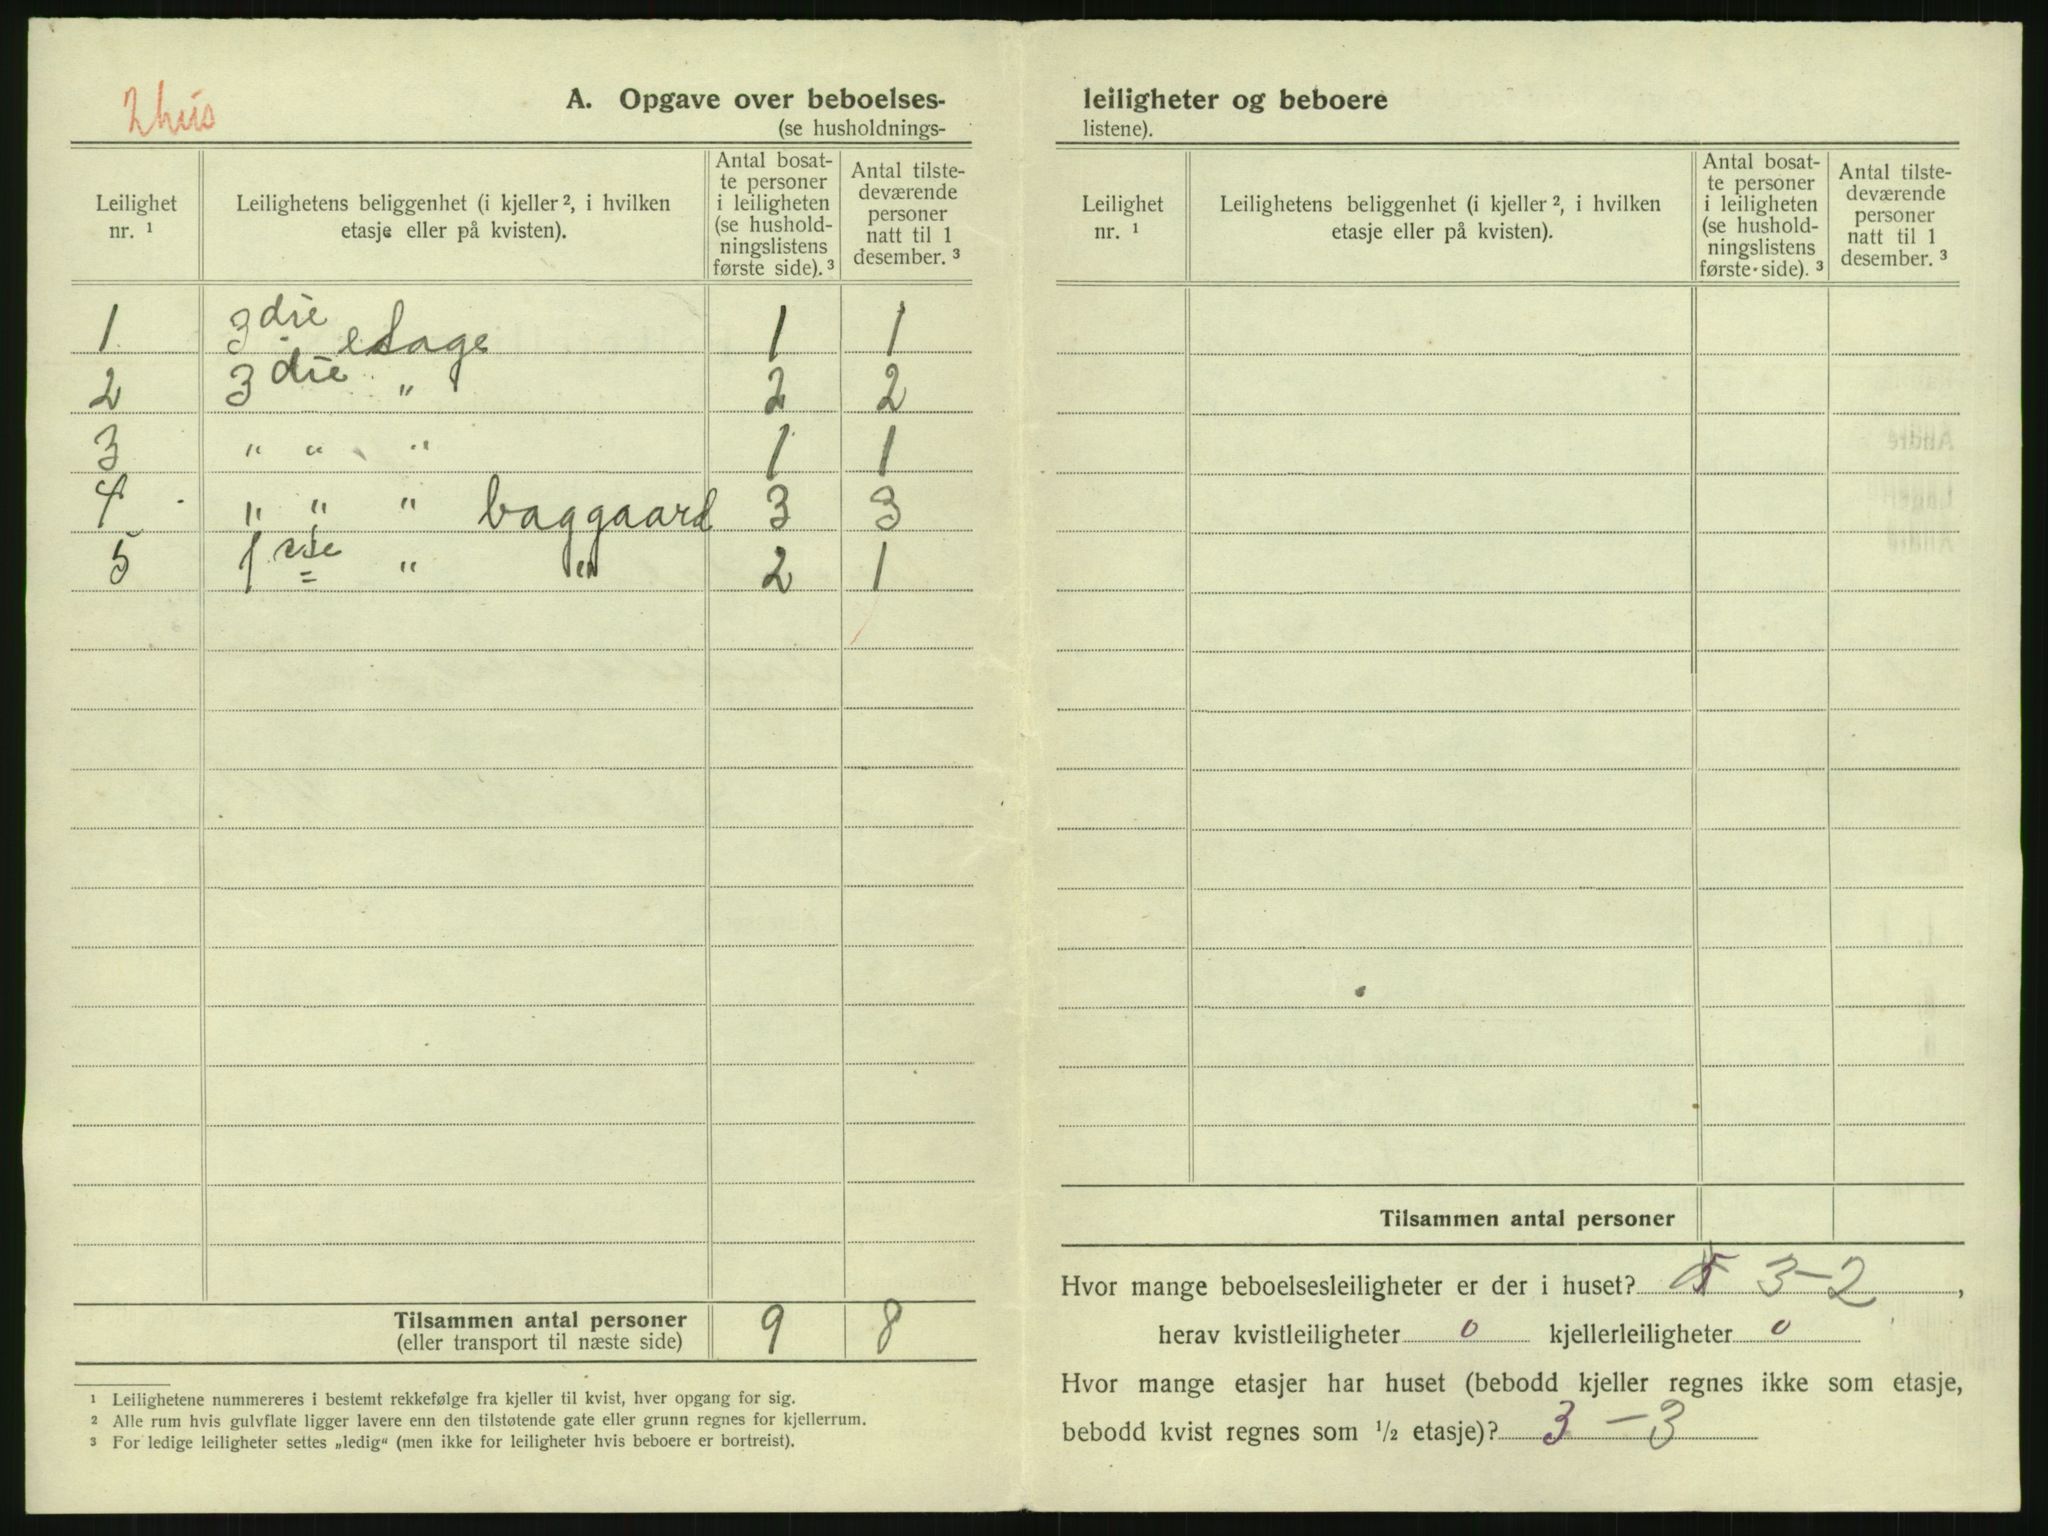 2 hus
A. Opgave over beboelses-
(se husholdnings-
Leilighet nr. ¹
Leilighetens beliggenhet (i kjeller ², i hvilken etasje eller på kvisten).
Antal bosat-te personer i leiligheten (se hushold-ningslistens første side). ³
Antal tilste-deværende personer natt til 1 desember. ³
1 3 die etage 1 1
2 3 die " 2 2
3 " " " 1 1
4 " " " baggaard 3 3
5 1 ste " " 2 1
Tilsammen antal personer 9 8
(eller transport til næste side)
¹ Leilighetene nummereres i bestemt rekkefølge fra kjeller til kvist, hver opgang for sig.
² Alle rum hvis gulvflate ligger lavere enn den tilstøtende gate eller grunn regnes for kjellerrum.
³ For ledige leiligheter settes „ledig“ (men ikke for leiligheter hvis beboere er bortreist).
leiligheter og beboere
listene).
Leilighet nr. ¹
Leilighetens beliggenhet (i kjeller ², i hvilken etasje eller på kvisten).
Antal bosat-te personer i leiligheten (se hushold-ningslistens første side). ³
Antal tilste-deværende personer natt til 1 desember. ³
Tilsammen antal personer
Hvor mange beboelsesleiligheter er der i huset? 3-2,
herav kvistleiligheter 0 kjellerleiligheter 0
Hvor mange etasjer har huset (bebodd kjeller regnes ikke som etasje,
bebodd kvist regnes som ½ etasje)? 3 - 3